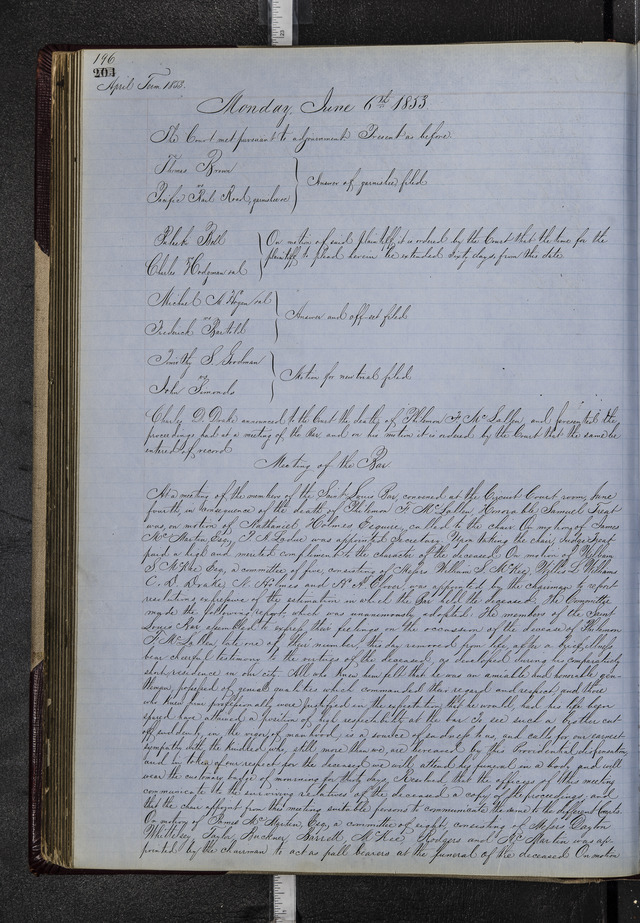 196
204
April Term 1853.
Monday, June 6th 1853
The Court met pursuant to adjournment. Present as before
Thomas Brown
vs
Paul Rood, garnishee
Answer of garnishee filed
Patrick Bell
Charles Hodgman et al
On motion of said plaintiff, it is ordered by the Court that the time for the
plaintiff to plead herein be extended sixty days from this date
Michael et al
vs
Frederick
Answer and off-set filed
Timothy S. Goodman
vs
John Simonds
Motion for new trial filed
Charles D. Drake announced to the Court the death of and presented the
proceedings had at a meeting of the Bar and on his motion it is ordered by the Court that the same be
entered of record
Meeting of the Bar
At a meeting of the members of the Saint Louis Bar, convened at the Circuit Court room, June
fourth, in consequence of the death of Honorable Samuel Treat
was, on motion of Nathaniel Holmes Esquire, called to the chair. On motion of James
Esq, was appointed Secretary. Upon taking the chair, Judge Treat
paid a high and merited compliment to the character of the deceased. On motion of William
S. McKee Esq, a committee of five, consisting of Messrs William S. McKee, Williams
C. D. Drake, N. Holmes and was appointed by the chairman to report
resolutions expressive of the estimation in which the Bar held the deceased. The Committee
made the following report which was unanimously adopted: The members of the Saint
Louis Bar assembled to express their feelings on the occasion of the decease of
late one of their number, this day removed from life, after a brief illness,
bear cheerful testimony to the virtues of the deceased, as developed during his comparatively
short residence in our city. All who knew him felt that he was an amiable and honorable gen-
tleman, possessed of genial qualities which commanded their regard and respect, and those
who knew him professionally were justified in the expectation that he would, had his life been
spared, have attained a position of high respectability at the bar. To see such a brother cut
off suddenly, in the vigor of manhood, is a source of sadness to us, and calls for our earnest
sympathy with the kindred who, still more than we, are bereaved by this Providential dispensation,
and in token of our respect for the deceased we will attend his funeral in a body, and will
wear the customary badge of mourning for thirty days. Resolved that the officers of this meeting
communicate to the surviving relatives of the deceased a copy of these proceedings, and
that the chair appoint from this meeting suitable persons to communicate the same to the different Courts.
On motion of James Esq, a committee of eight, consisting of Messrs Dayton
Whittelsey, Barrett, McKee, Rodgers and was ap-
pointed by the chairman to act as pall bearers at the funeral of the deceased. On motion